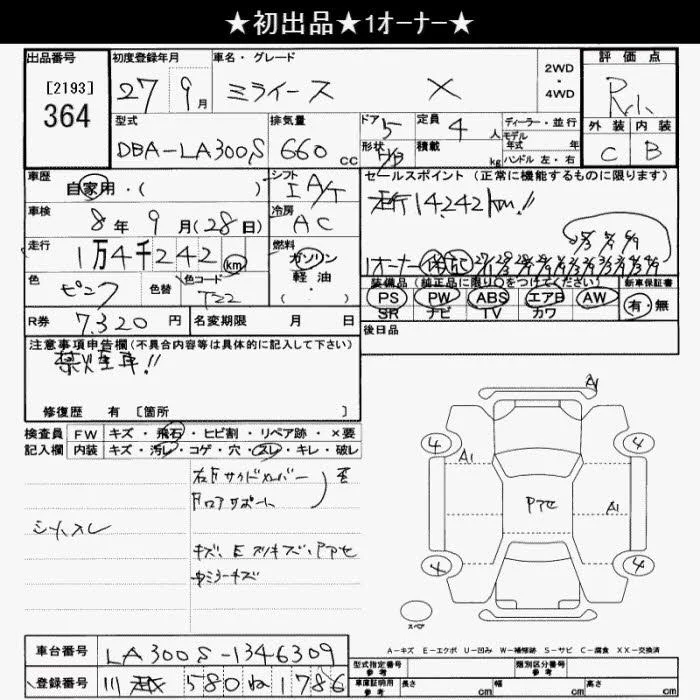 ★初出品★1オーナー★
出品番号 初度登録年月 車名・グレード 評価点
[2193] 27 9月 ミライース X 2WD・4WD R
364 型式 排気量 ドア 5 定員 4人 ディーラー・並行 外装 内装
DBA-LA300S 660cc 形状 積載 kg モデル年式 年 C B
ハンドル 左・右
車歴 自家用・( ) シフト I A/T セールスポイント (正常に機能するものに限ります)
車検 8年9月(28日) 冷房 AC 走行14,242km!!
走行 1万4千242km 燃料 ガソリン 軽油・( ) 1オーナー
色 ピンク 色替 色コード T22 装備品 (純正品に限り○をつけてください) 新車保証書
PS PW ABS エアB AW 有・無
SR ナビ TV カワ
R券 7,320円 名変期限 月 日 後日品
注意事項申告欄(不具合内容等は具体的に記入して下さい)
禁煙車!!
修復歴 有 [箇所 ]
検査員 FW キズ・飛石・ヒビ割・リペア跡・×要
記入欄 内装 キズ・汚レ・コゲ・穴・スレ・キレ・破レ
A1
4 4
A1
右Fサイドメンバー 歪
Fロアサポート
Pアセ A1
シートスレ
キズ、E スリキズ、Pアセ
中ミラーキズ
4 4
スペア
A-キズ E-エクボ U-凹み W-補修跡 S-サビ C-腐食 XX-交換済
車台番号 LA300S-1346309
型式指定番号 参考 類別区分番号 参考
登録番号 580 ね 1786
車庫証明用 参考 長さ cm 幅 cm 高さ cm